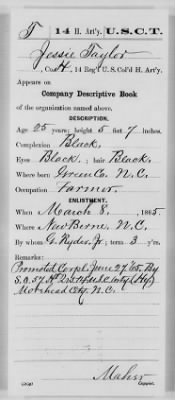 T | 14 H. Art'y. | U.S.C.T.
Jessie Taylor
, Co. H, 14 Reg't U. S. Col'd H. Art'y.
Appears on
Company Descriptive Book
of the organization named above.
DESCRIPTION.
Age 25 years; height 5 feet 7 inches.
Complexion Black.
Eyes Black.; hair Black.
Where born Green Co. N. C.
Occupation Farmer.
ENLISTMENT.
When March 8, 1865.
Where New Berne, N. C.
By whom G. Ryder, Jr; term 3 y'rs.
Remarks:
Promoted Corpl. June 27/65. By
S.O. 57
Morehead City, N. C.
Maher
Copyist.